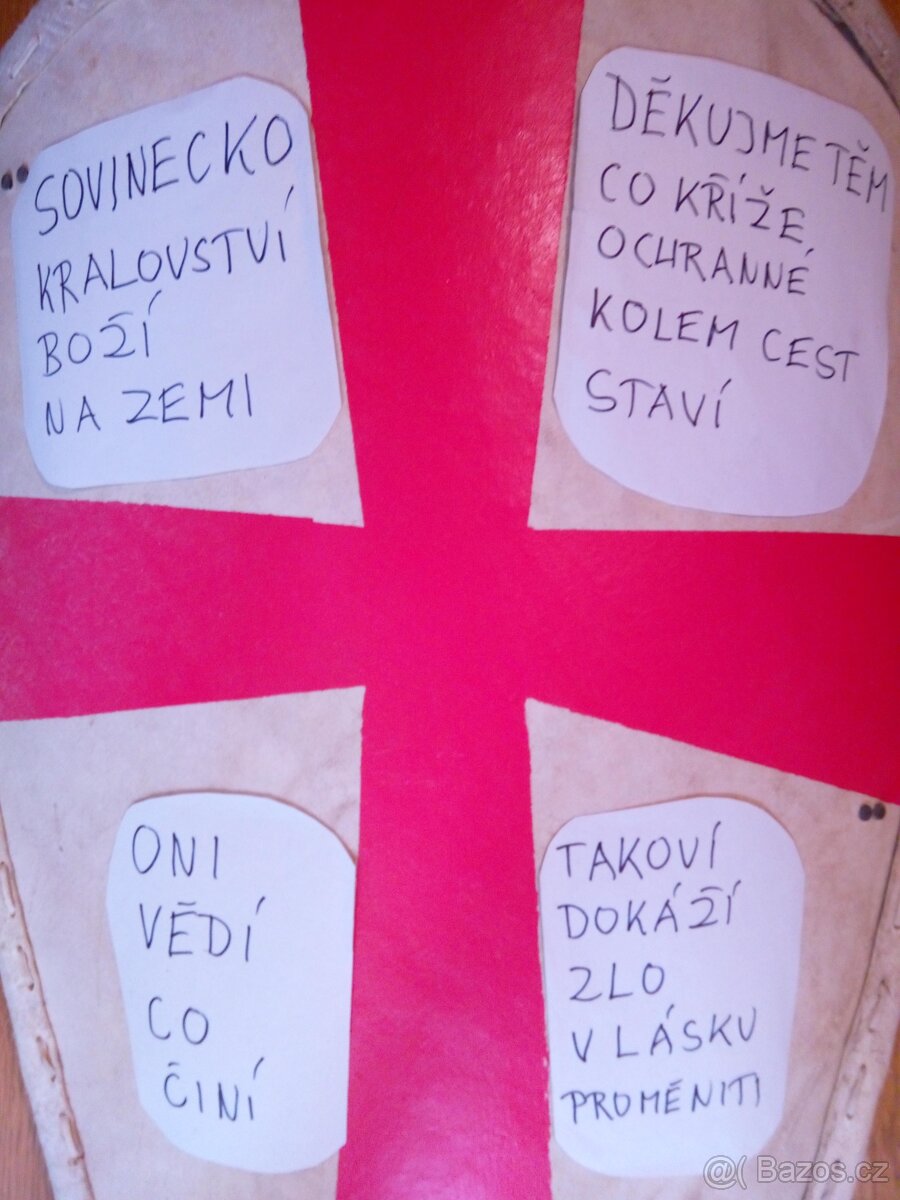 SOVINECKO
KRALOVSTVÍ
BOŽÍ
NA ZEMI
DĚKUJME TĚM
CO KŘÍŽE
OCHRANNÉ
KOLEM CEST
STAVÍ
ONI
VĚDÍ
CO
ČINÍ
TAKOVÍ
DOKÁŽÍ
ZLO
V LÁSKU
PROMĚNITI
@( Bazos.cz